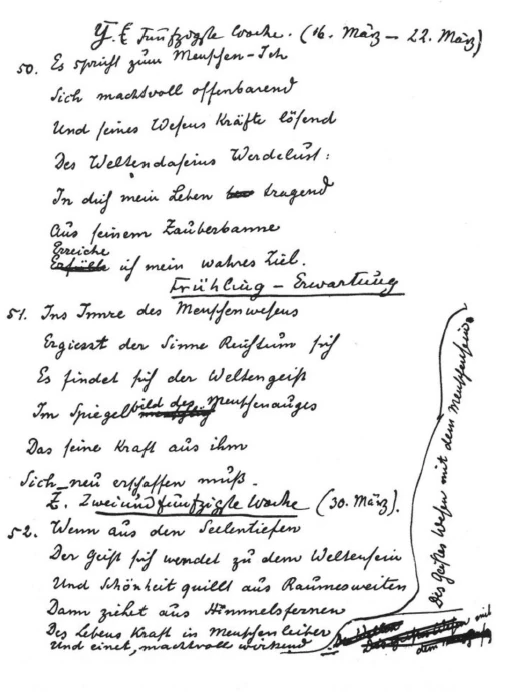 Y. E Fünfzigste Woche. (16. März – 22. März)
50. Es spricht zum Menschen-Ich
Sich machtvoll offenbarend
Und seines Wesens Kräfte lösend
Des Weltendaseins Werdelust:
In dich mein Leben tragend
Aus seinem Zauberbanne
Erreiche
Erfülle ich mein wahres Ziel.
Frühling – Erwartung
51. Ins Innre des Menschenwesens
Ergiesst der Sinne Reichtum sich
Es findet sich der Weltengeist
Im Spiegelbild des Menschenauges
Das seine Kraft aus ihm
Sich neu erschaffen muß.
Z. Zweiundfünfzigste Woche (30. März).
52. Wenn aus den Seelentiefen
Der Geist sich wendet zu dem Weltensein
Und Schönheit quillt aus Raumesweiten
Dann ziehet aus Himmelsfernen
Des Lebens Kraft in Menschenleiber
Und einet, machtvoll wirkend
Des Geistes Wesen mit dem Menschensein.
Des Geistes Wesen mit
dem